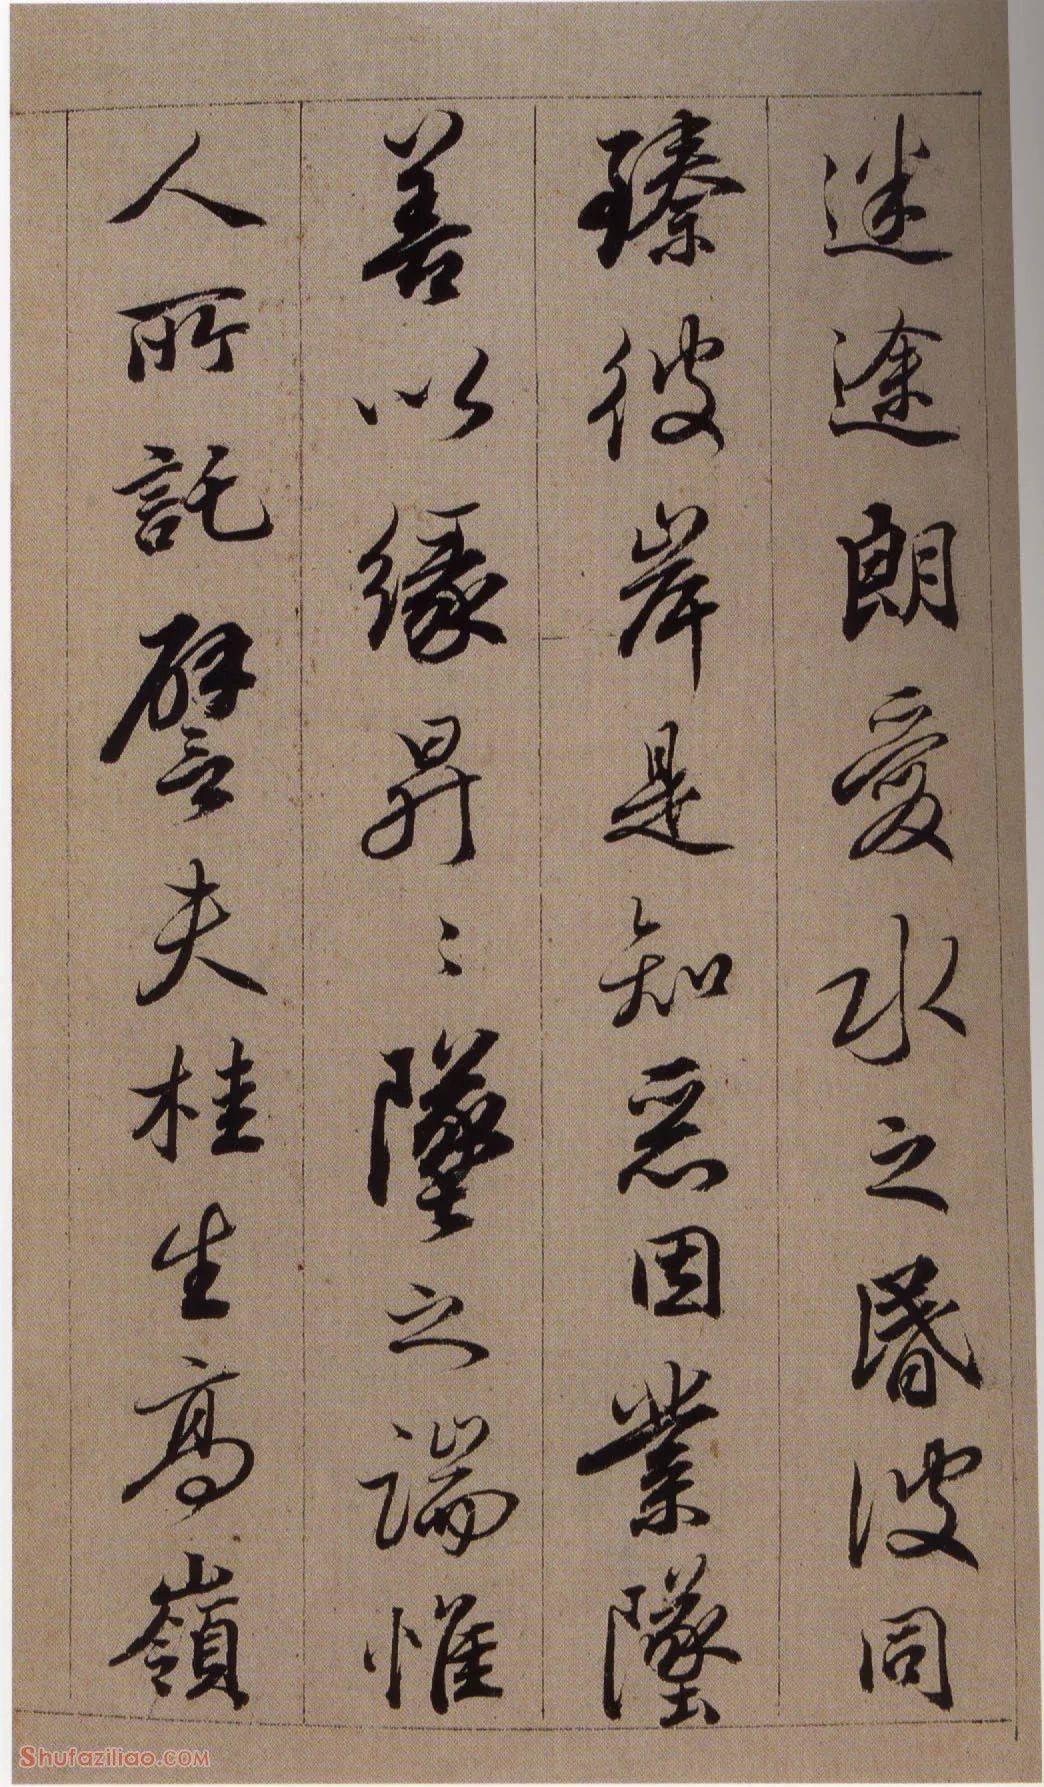 迷途朗愛水之昬波同
臻彼岸是知惡因業墜
善以緣昇〻墜之端惟
人所託譬夫桂生高嶺
Shufaziliao.COM